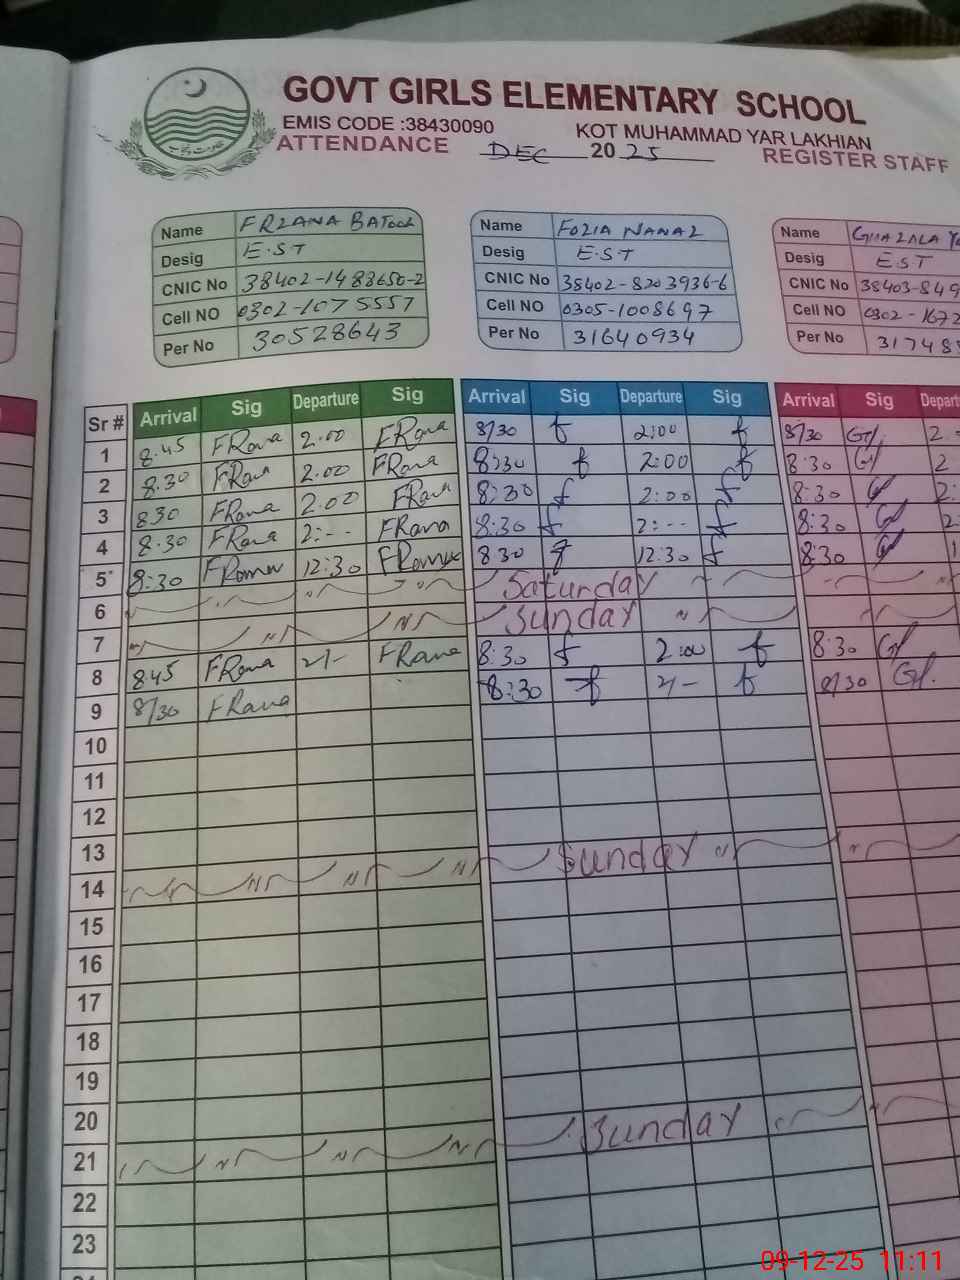 GOVT GIRLS ELEMENTARY SCHOOL
EMIS CODE :38430090 KOT MUHAMMAD YAR LAKHIAN
ATTENDANCE DEC 2025 REGISTER STAFF
Name FRZANA BATOOL
Desig E.S.T
CNIC No 38402-1488650-2
Cell NO 0302-1075557
Per No 30528643
Name FOZIA NAWAZ
Desig E.S.T
CNIC No 38402-8203936-6
Cell NO 0305-1008697
Per No 31640934
Name GHAZALA
Desig E.S.T
CNIC No 38403-849
Cell NO 0302-1672
Per No 31748
Sr # Arrival Sig Departure Sig Arrival Sig Departure Sig Arrival Sig Depart
1 8.45 FRana 2.00 FRana 8/30 f 2:00 f 8/30 Gf 2.
2 8.30 FRana 2.00 FRana 8:30 f 2:00 f 8:30 Gf 2
3 830 FRana 2.00 FRana 8:30 f 2:00 f 8:30 Gf 2:
4 8.30 FRana 2:-- FRana 8:30 f 2:-- f 8:30 Gf 2
5 8:30 FRana 12:30 FRana 830 f 12:30 f 8:30 Gf 1
6 Saturday
7 Sunday
8 8:45 FRana 2/- FRana 8:30 f 2:00 f 8:30 Gf
9 8/30 FRana 8:30 f 2/- f 8/30 Gf.
10
11
12
13
14 Sunday
15
16
17
18
19
20
21 Sunday
22
23
09-12-25 11:11